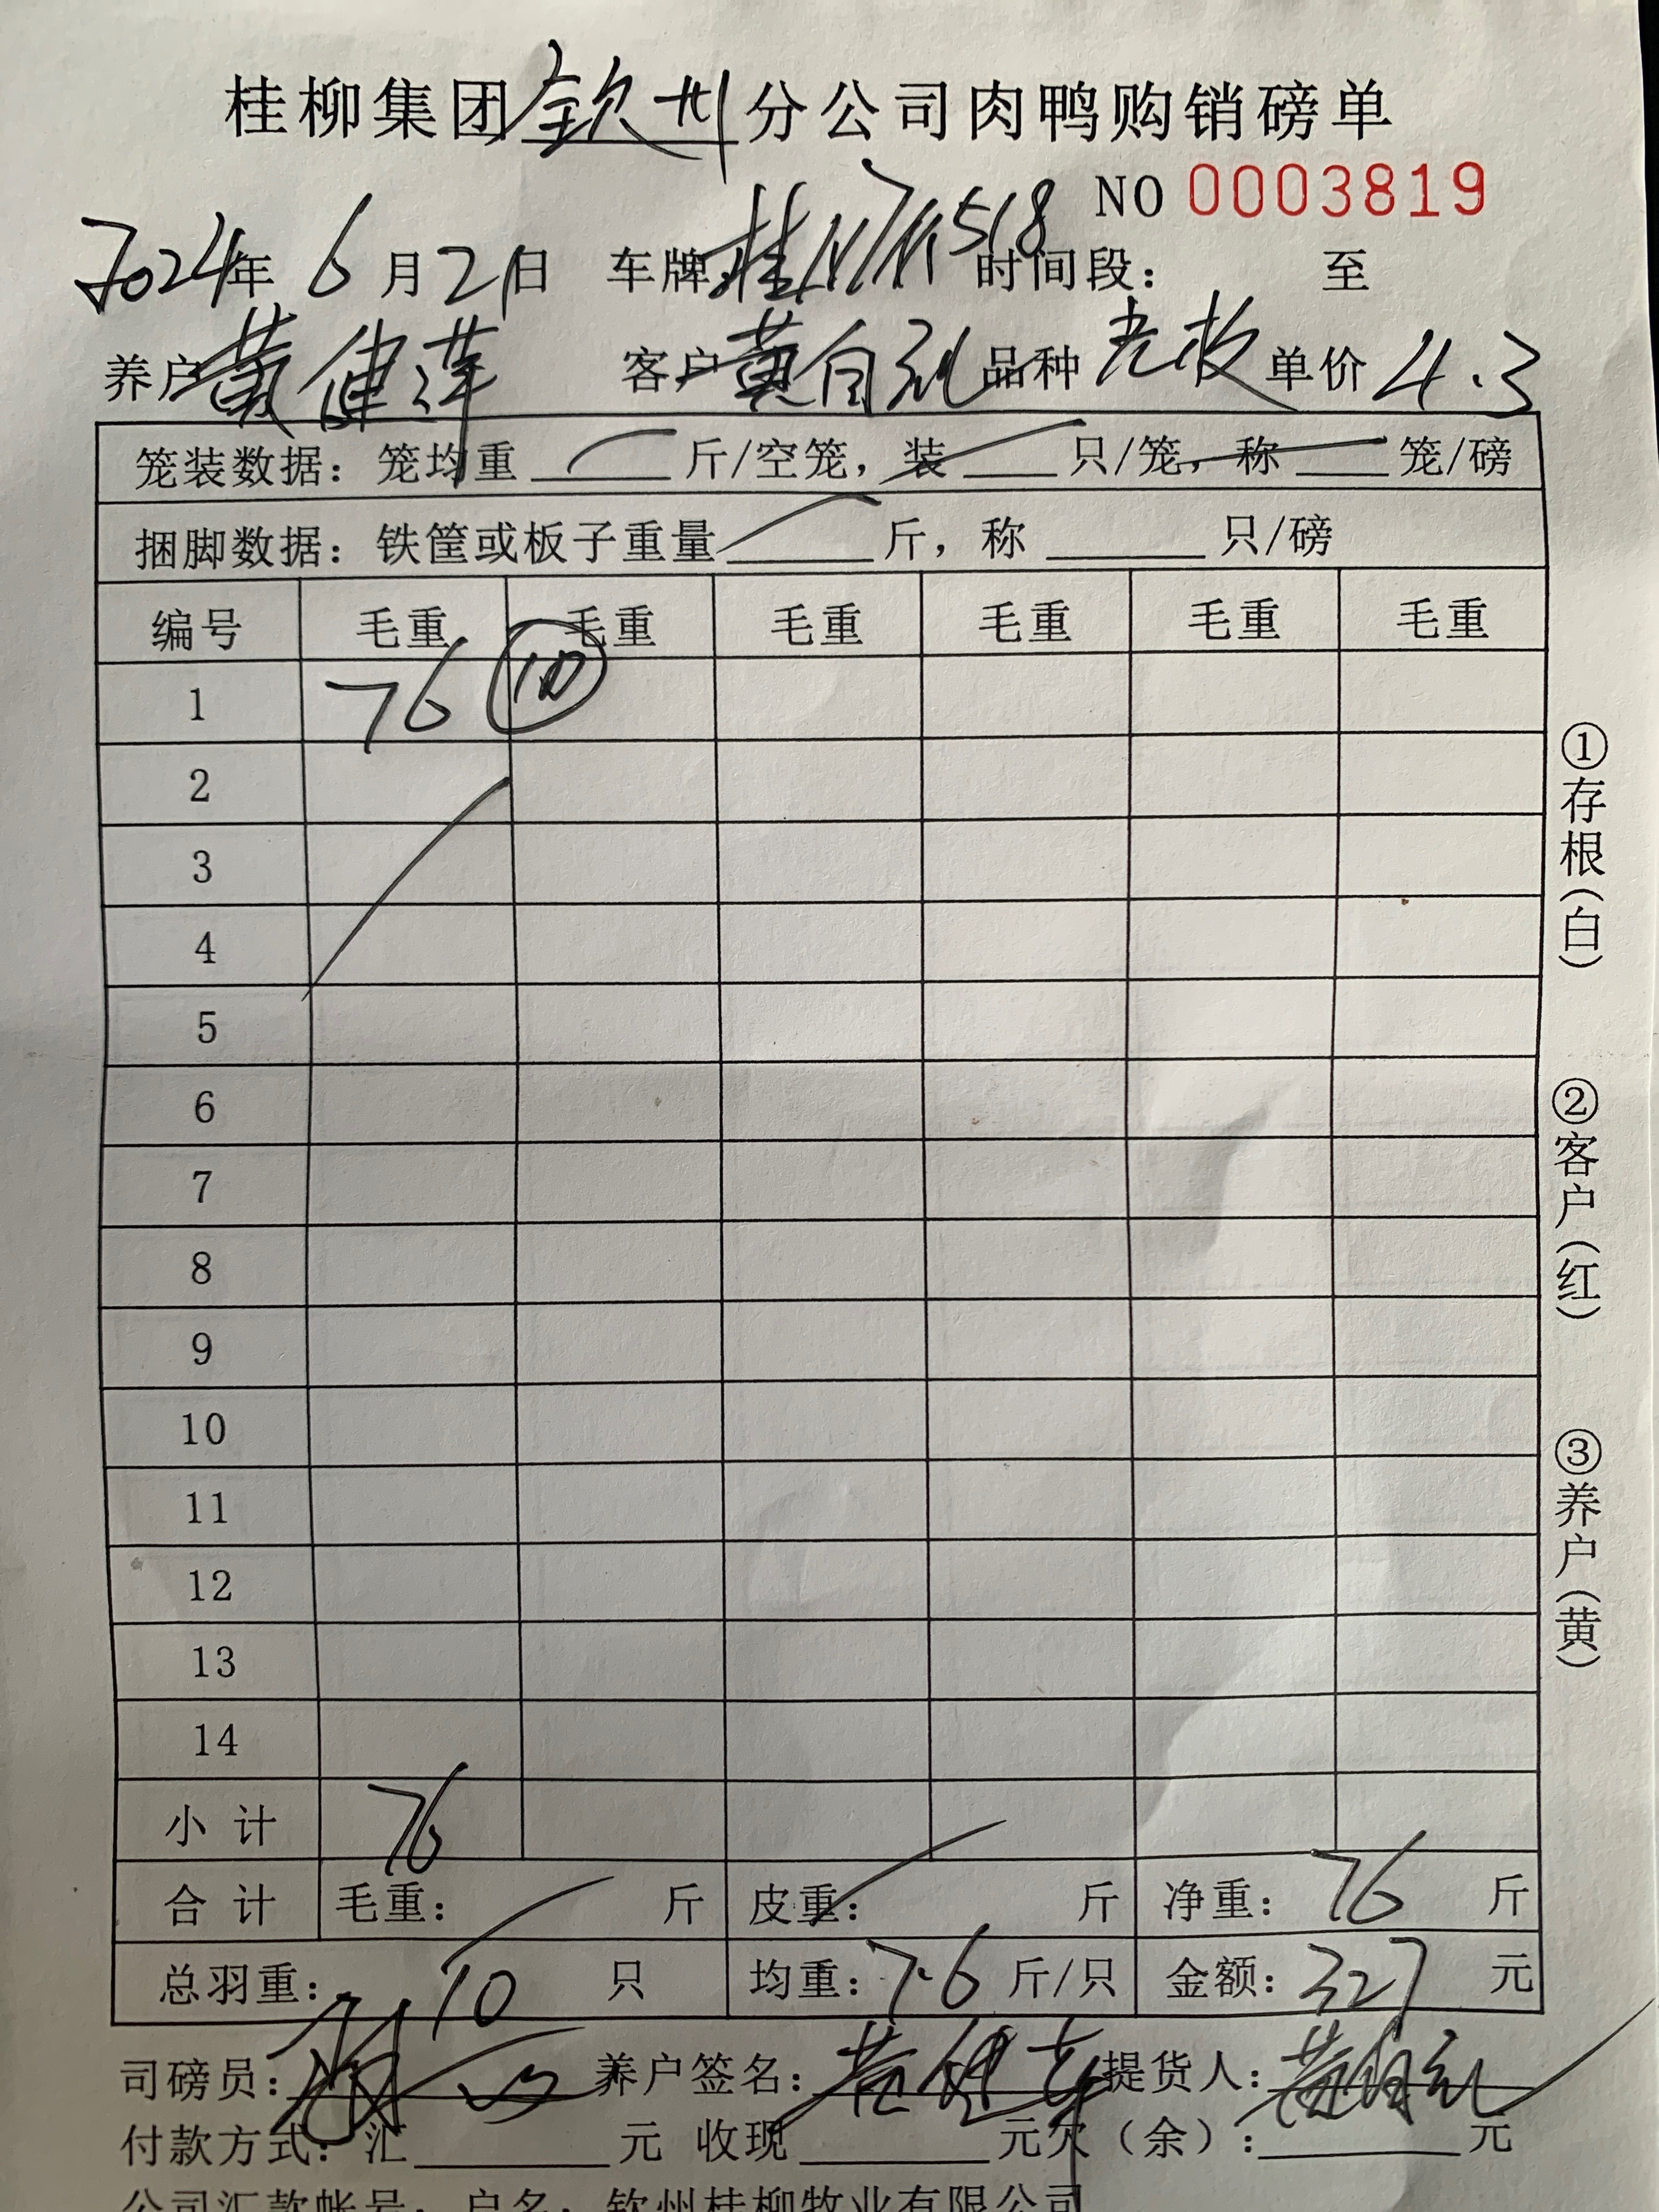 桂柳集团钦州分公司肉鸭购销磅单
NO 0003819
2024年 6月21日 车牌 桂 518 时间段： 至
养户 黄 客户 黄自 品种 单价 4.3
笼装数据：笼均重 斤/空笼，装 只/笼，称 笼/磅
捆脚数据：铁筐或板子重量 斤，称 只/磅
编号 毛重 毛重 毛重 毛重 毛重 毛重
1 76 ⑩
2
3
4
5
6
7
8
9
10
11
12
13
14
小计 76
合计 毛重： 斤 皮重： 斤 净重：76 斤
总羽重：10 只 均重：7.6 斤/只 金额：327 元
司磅员： 养户签名：黄 提货人：黄自
付款方式：汇 元 收现 元欠（余）： 元
公司汇款帐号：户名：钦州桂柳牧业有限公司
①存根（白）
②客户（红）
③养户（黄）